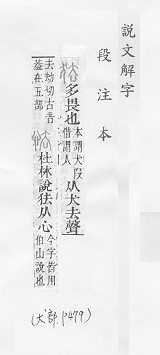 說文解字
段注本
多畏也本謂犬叚借謂人从犬去聲
去劫切古音葢在五部杜林說㹤从心今字皆用伯山說也
(犬部. p479)